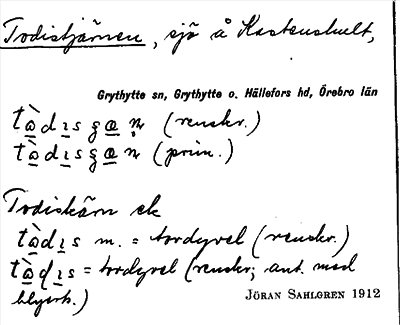 Todistjärnen, sjö å Kastenshult,
Grythytte sn, Grythytte o. Hällefors hd, Örebro län
tὰdɩsʒæn̥ (renskr.)
tὰdɩsʒæn (prim.)
Todiskärn ek
tὰdɩs m. = tordyvel (renskr.)
tὰdɩs = tordyvel (renskr; ant. med
blyert.)
JÖRAN SAHLGREN 1912